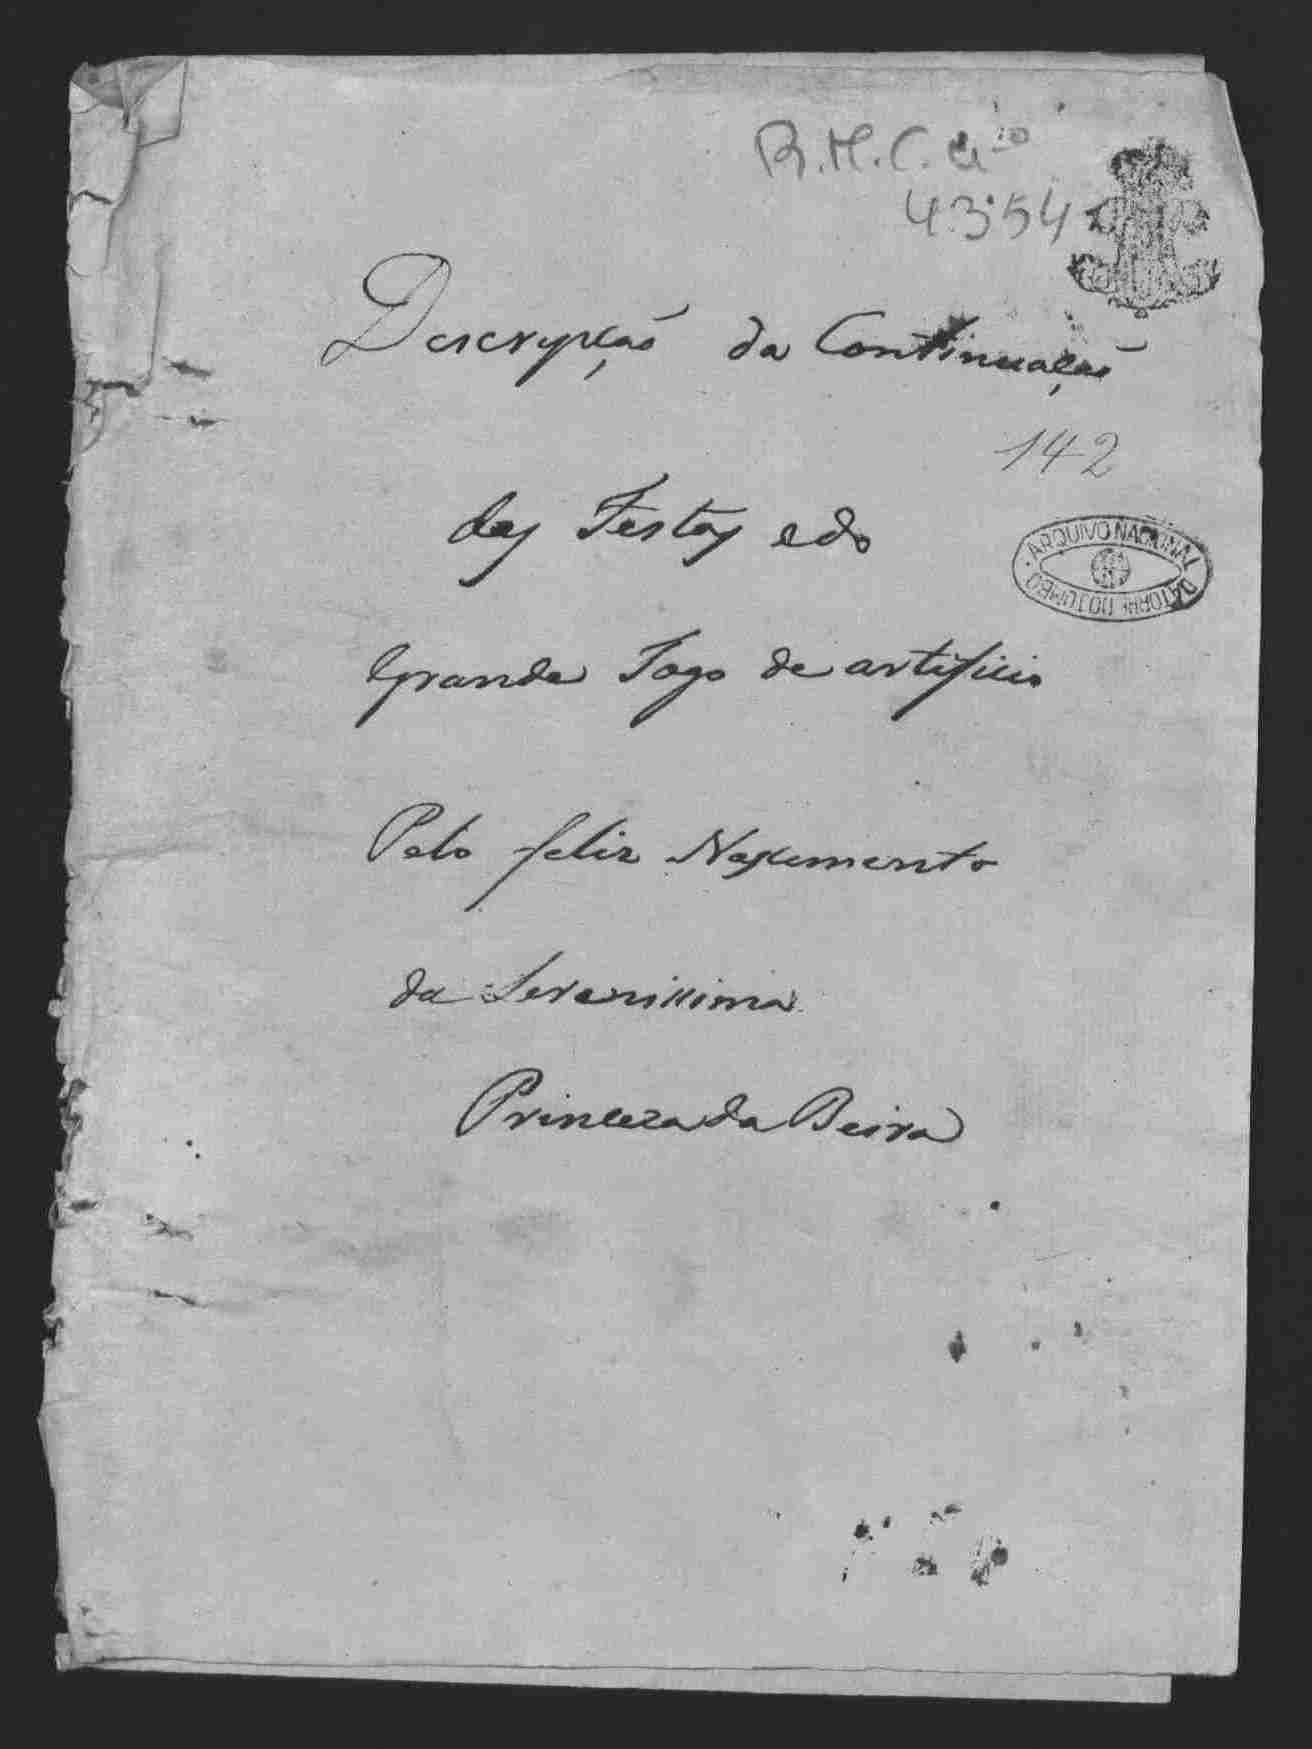 R.M.C. Cx
4354
Descrypção da Continuação
142
das Festas e do
ARQUIVO NACIONAL DA TORRE DO TOMBO
Grande Fogo de artificio
Pelo feliz Nascimento
da Serenissima
Princeza da Beira